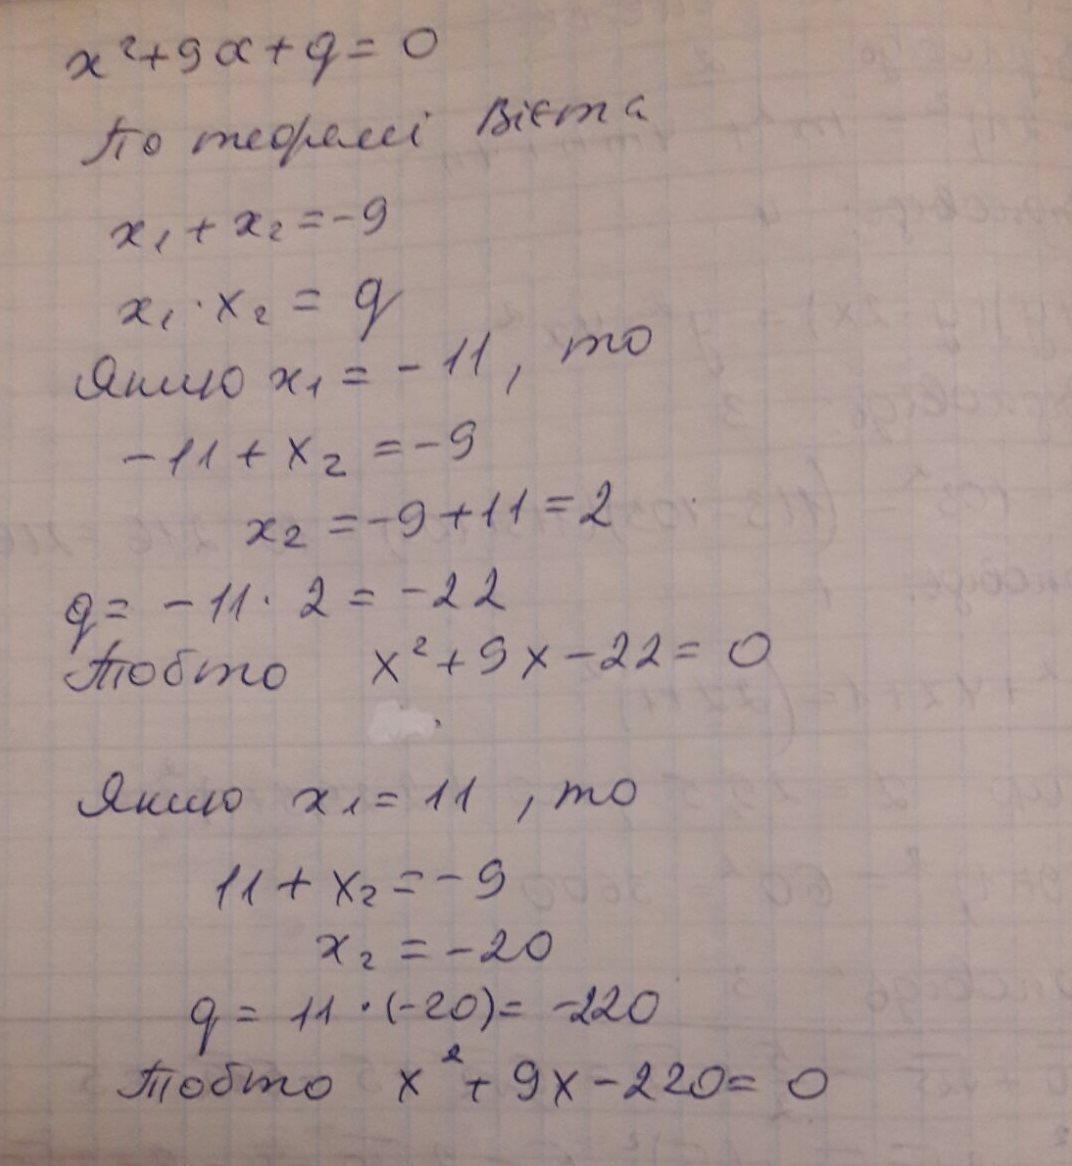 x² + 9x + q = 0
По теоремі Вієта
x₁ + x₂ = -9
x₁ · x₂ = q
Якщо x₁ = -11, то
-11 + x₂ = -9
x₂ = -9 + 11 = 2
q = -11 · 2 = -22
Тобто x² + 9x - 22 = 0
Якщо x₁ = 11, то
11 + x₂ = -9
x₂ = -20
q = 11 · (-20) = -220
Тобто x² + 9x - 220 = 0